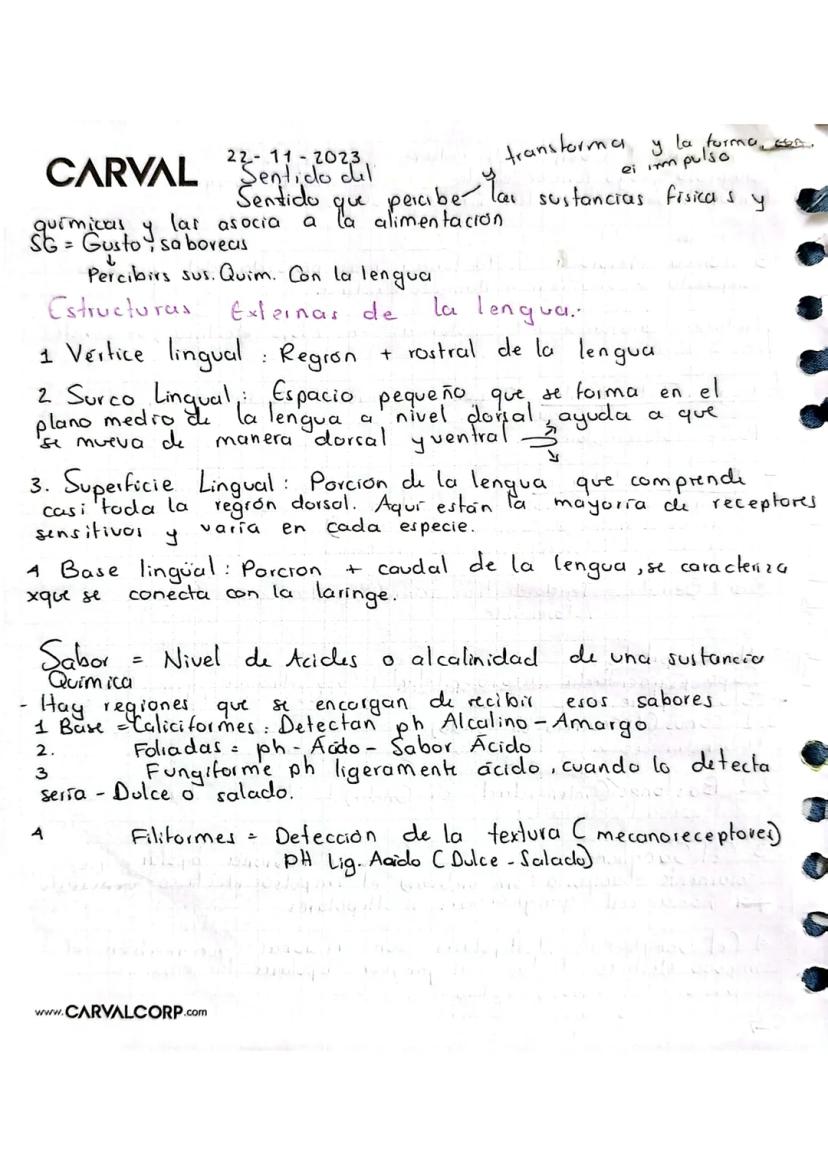 CARVAL
22-11-2023
transforma y la forma, con.
el impulso
Sentido del
Sentido que percibe y las sustancias físicas y
químicas y las asocia a la alimentación
SG = Gusto; saboreas
↓
Percibirs sus. Quim. Con la lengua
Estructuras Externas de la lengua.
1 Vértice lingual : Región + rostral de la lengua
2 Surco Lingual : Espacio pequeño que se forma en el
plano medio de la lengua a nivel dorsal, ayuda a que
se mueva de manera dorsal y ventral
3. Superficie Lingual : Porción de la lengua que comprende
casi toda la región dorsal. Aquí están la mayoría de receptores
sensitivos y varía en cada especie.
4 Base lingüal : Porción + caudal de la lengua, se caracteriza
xque se conecta con la laringe.
Sabor = Nivel de Acides o alcalinidad de una sustancia
Química
- Hay regiones que se encargan de recibir esos sabores
1 Base = Caliciformes : Detectan ph Alcalino - Amargo
2. Foliadas = ph - Ácido - Sabor Ácido
3 Fungiforme ph ligeramente ácido, cuando lo detecta
sería - Dulce o salado.
4 Filiformes = Detección de la textura (mecanoreceptores)
pH Lig. Acido (Dulce - Salado)
www.CARVALCORP.com